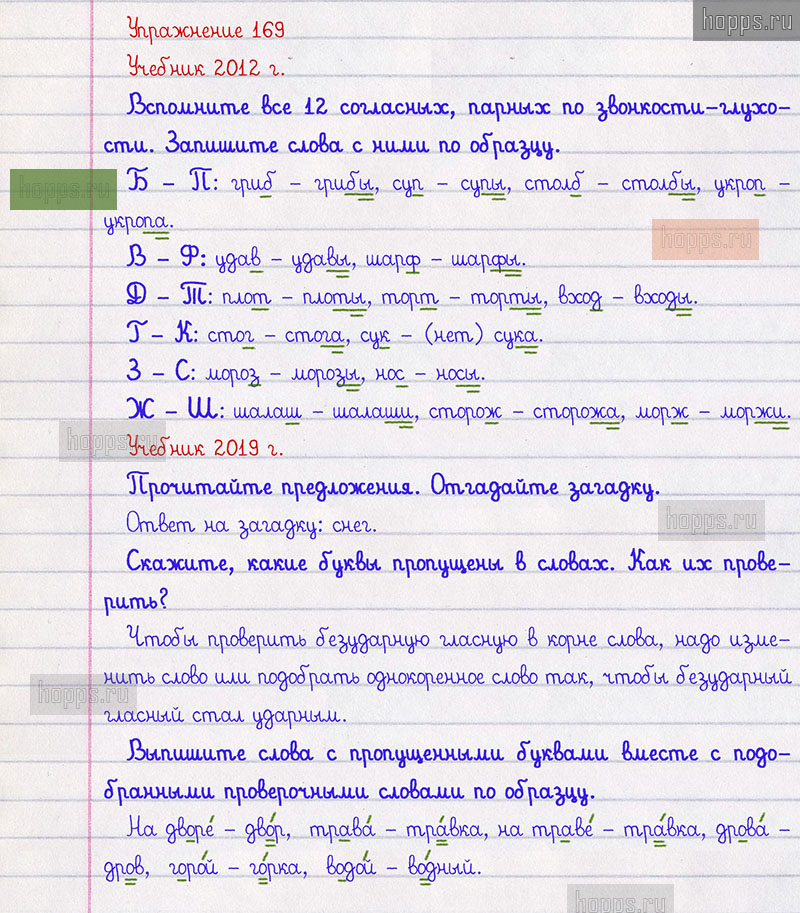 hopps.ru
Упражнение 169
Учебник 2012 г.
Вспомните все 12 согласных, парных по звонкости-глухо-
сти. Запишите слова с ними по образцу.
Б - П: гриб - грибы, суп - супы, столб - столбы, укроп -
hopps.ru
укропа.
hopps.ru
В - Ф: удав - удавы, шарф - шарфы.
Д - Т: плот - плоты, торт - торты, вход - входы.
Г - К: стог - стога, сук - (нет) сука.
З - С: мороз - морозы, нос - носы.
Ж - Ш: шалаш - шалаши, сторож - сторожа, морж - моржи.
hopps.ru
Учебник 2019 г.
Прочитайте предложения. Отгадайте загадку.
Ответ на загадку: снег.
hopps.ru
Скажите, какие буквы пропущены в словах. Как их прове-
рить?
Чтобы проверить безударную гласную в корне слова, надо изме-
нить слово или подобрать однокоренное слово так, чтобы безударный
hopps.ru
гласный стал ударным.
Выпишите слова с пропущенными буквами вместе с подо-
бранными проверочными словами по образцу.
На дворе́ - дво́р, трава́ - тра́вка, на траве́ - тра́вка, дрова́ -
дров, горо́й - го́рка, водо́й - во́дный.
hopps.ru